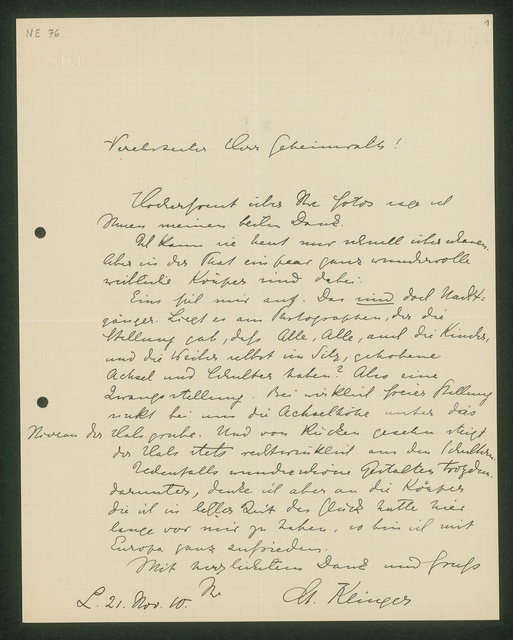 NE 76
1
M.K
Verehrtester Herr Geheimrath!
Hocherfreut über Ihre Fotos sage ich
Ihnen meinen besten Dank.
Ich kann sie heut nur schnell überschauen.
Aber in der That ein paar ganz wundervolle
weibliche Körper sind dabei.
Eins fiel mir auf. Das sind doch Nackt-
gänger. Liegt es am Photographen, der die
Stellung gab, daß Alle, Alle, auch die Kinder,
und die Weiber selbst im Sitz, gehobene
Achsel und Schulter haben? Also eine
Zwangsstellung. Bei wirklich freier Stellung
sinkt bei uns die Achselhöhe unter das
Niveau der Halsgrube. Und von Rücken gesehen steigt
der Hals stets rechtwinklich aus den Schultern.
Jedenfalls wunderschöne Gestalten trozdem
darunter, denke ich aber an die Körper
die ich in letzter Zeit das Glück hatte hier
lange vor mir zu haben, so bin ich mit
Europa ganz zufrieden.
Mit herzlichstem Dank und Gruß
Ihr
L. 21. Nov. 10. M. Klinger